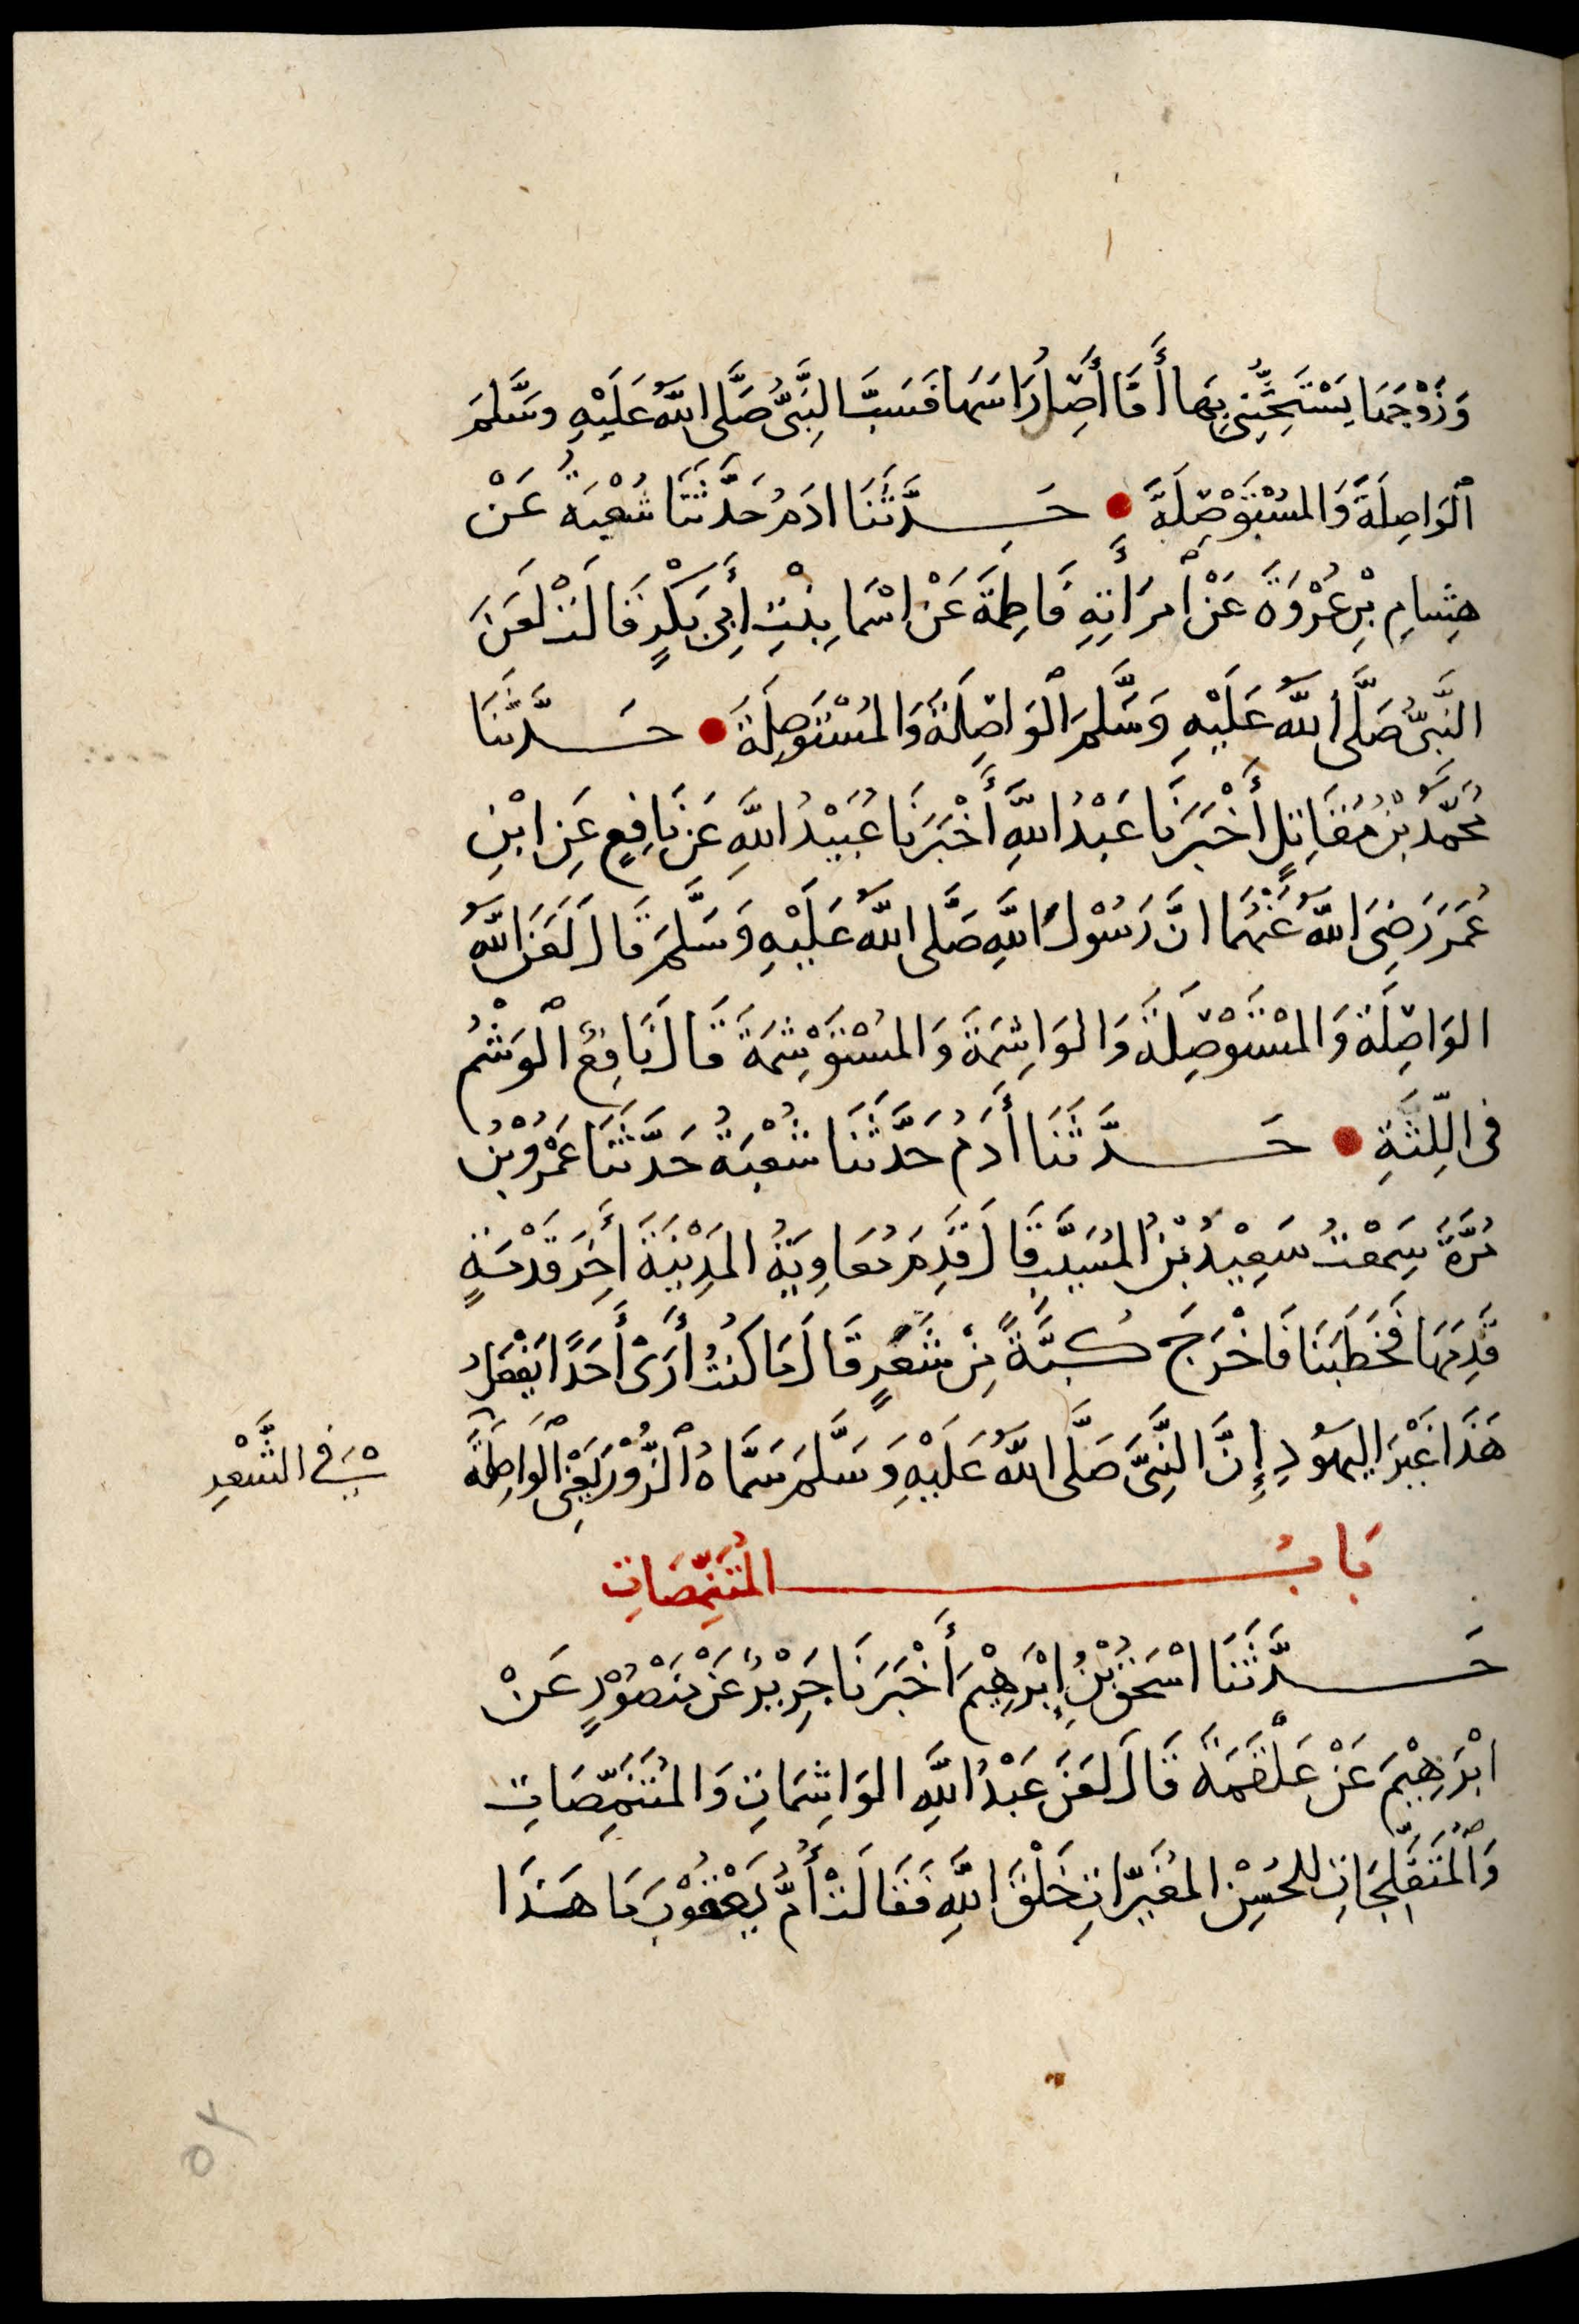 وَزَوْجَهَا يَسْتَحِثُّنِى بِهَا أَفَأَصِلُ رَاسَهَا فَسَبَّ النَّبِىُّ صَلَّى اللَّهُ عَلَيْهِ وسَلَّمَ
الْوَاصِلَةَ وَالمُسْتَوْصِلَةَ حَدَّثَنَا ادَمُ حَدَّثَنَا شُعْبَةُ عَنْ
هِشَامِ بْنِ عُرْوَةَ عَنْ امْرَأَتِهِ فَاطِمَةَ عَنْ اسْمَا بِنْتِ أَبِى بَكْرٍ قَالَتْ لَعَنَ
النَّبِىُّ صَلَّى اللَّهُ عَلَيْهِ وَسَلَّمَ الْوَاصِلَةَ وَالمُسْتَوْصِلَةَ حَدَّثَنَا
مُحَمَّدُ بْنُ مُقَاتِلٍ أَخْبَرَنَا عَبْدُ اللَّهِ أَخْبَرَنَا عُبَيْدُ اللَّهِ عَنْ نَافِعٍ عَنِ ابْنِ
عُمَرَ رَضِىَ اللَّهُ عَنْهُمَا انَّ رَسُوْلَ اللَّهِ صَلَّى اللَّهُ عَلَيْهِ وَسَلَّمَ قَالَ لَعَنَ اللَّهُ
الوَاصِلَةَ وَالمُسْتَوْصِلَةَ وَالوَاشِمَةَ وَالمُسْتَوْشِمَةَ قَالَ نَافِعٌ الْوَشْمُ
فى اللِّثَةِ حَدَّثَنَا أَدَمُ حَدَّثَنَا شُعْبَةُ حَدَّثَنَا عَمْرُوْ بْنُ
مُرَّةَ سَمِعْتُ سَعِيْدَ بْنَ المُسَيَّبِ قَالَ قَدِمَ مُعَاوِيَةُ المَدِيْنَةَ أَخِرَ قَدْمَةٍ
قَدِمَهَا فَخَطَبَنَا فَاخْرَجَ كُبَّةً مِنْ شَعَرٍ قَالَ مَا كُنْتُ أَرَىْ أَحَدًا يَفْعَلُ
هَذَا غَيْرَ اليَهُوْدِ إِنَّ النَّبِىَّ صَلَّى اللَّهُ عَلَيْهِ وَسَلَّمَ سَمَّاهُ الزُّوْرَ يَعْنِى الْوَاصِلَةَ
فى الشَّعْرِ
بَابُ المُتَنَمِّصَاتِ
حَدَّثَنَا اسْحَقُ بْنُ إِبْرَهِيْمَ أَخْبَرَنَا جَرِيْرٌ عَنْ مَنْصُوْرٍ عَنْ
ابْرَهِيْمَ عَنْ عَلْقَمَةَ قَالَ لَعَنَ عَبْدُ اللَّهِ الوَاشِمَاتِ وَالمُتَنَمِّصَاتِ
وَالْمُتَفَلِّجَاتِ لِلحُسْنِ المُغَيِّرَاتِ خَلْقَ اللَّهِ فَقَالَتْ أُمُّ يَعْقُوْبَ مَا هَذَا
٥٢